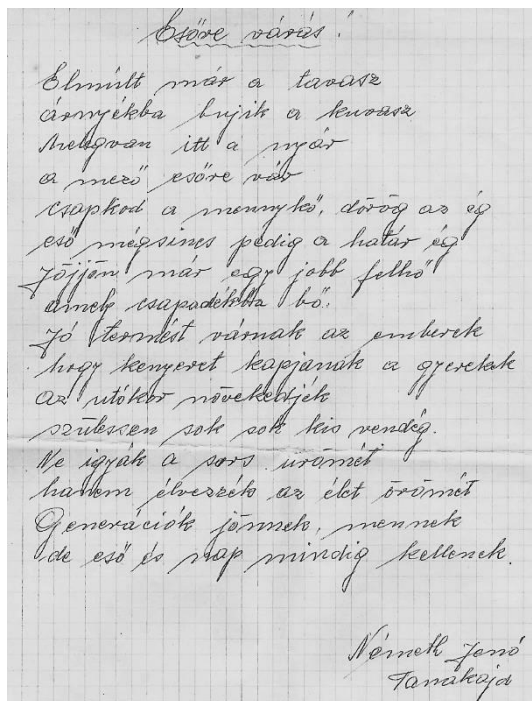 Esőre várás!
Elmúlt már a tavasz
árnyékba bujik a kuvasz
Melegvan itt a nyár
a mező esőre vár
csapkod a mennykő, dörög az ég
eső mégsincs pedig a határ ég
Jöjjön már egy jobb felhő
amely csapadékba bő.
Jó termést várnak az emberek
hogy kenyeret kapjanak a gyerekek
az utókor növekedjék
szülessen sok sok kis vendég.
Ne igyák a sors ürömét
hanem élvezzék az élet örömét
Generációk jönnek, mennek
de eső és nap mindig kellenek.
Németh Jenő
Tanakajd